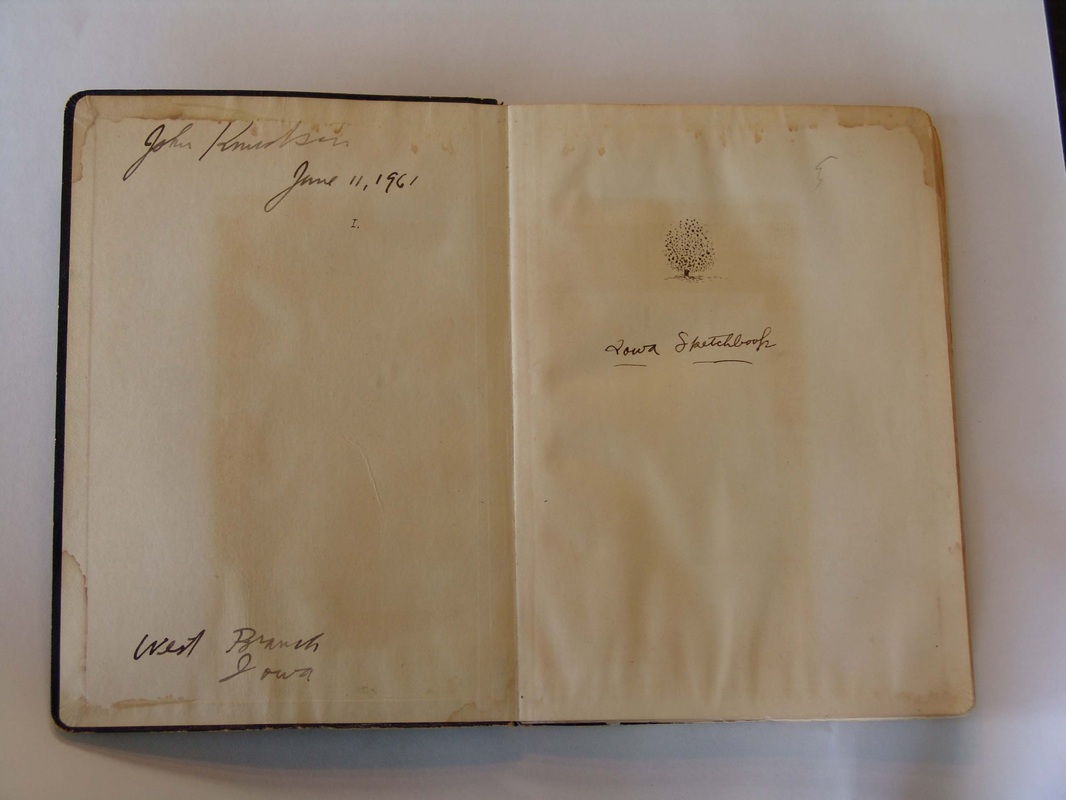 John Knudsen
June 11, 1961
I.
West Branch
Iowa
Iowa Sketchbook